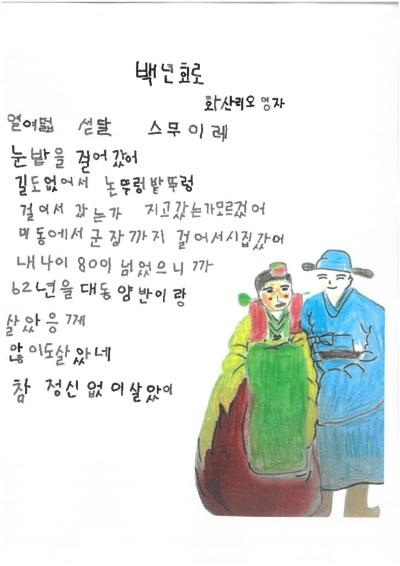 백년회로
화산리오영자
열여덟 섣달 스무이레
눈밭을 걸어갔어
길도없어서 논뚜렁밭뚜렁
걸어서 갔는가 지고갔는가모르겠어
미동에서군장까지 걸어서시집갔어
내나이80이넘었으니까
62년을대동양반이랑
살았응께
많이도살았네
참 정신없이살았어